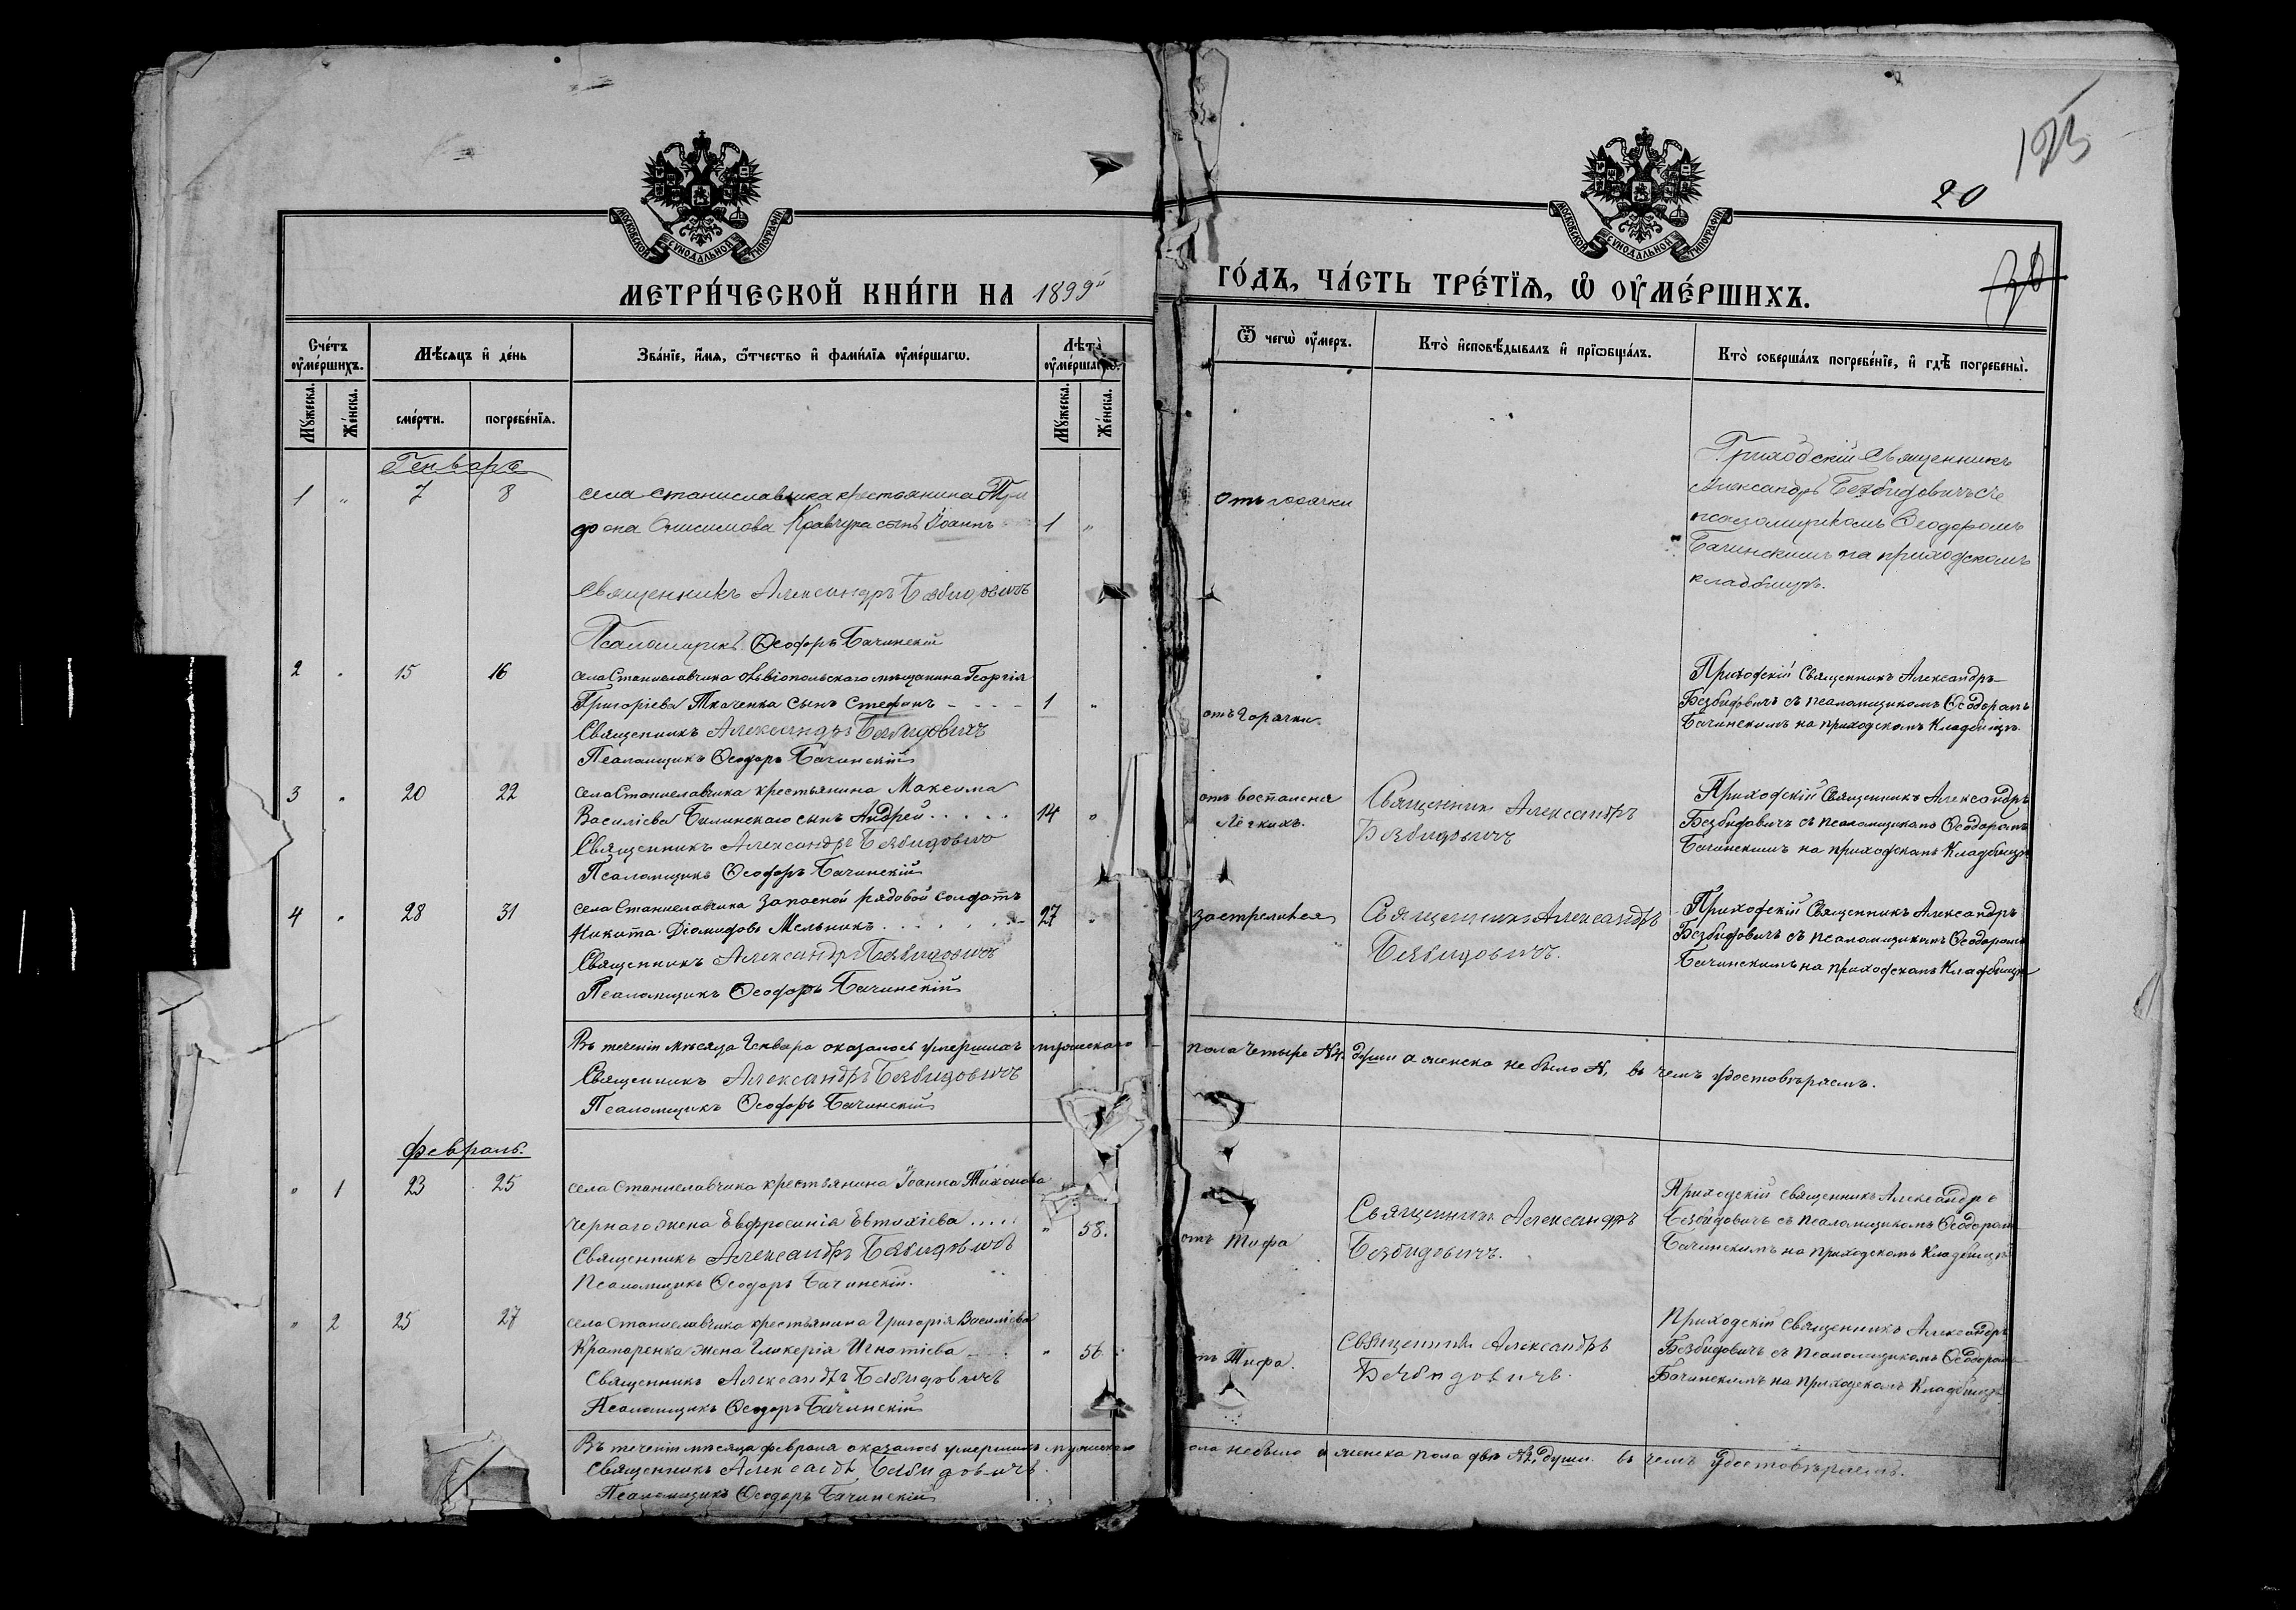 125
20
МОСКОВСКОЙ СѴНОДАЛЬНОЙ ТИПОГРАФІИ
МОСКОВСКОЙ СѴНОДАЛЬНОЙ ТИПОГРАФІИ
МЕТРИ́ЧЕСКОЙ КНИ́ГИ НА 1899й
ГО́ДЪ, ЧА́СТЬ ТРЕ́ТЇѦ, Ѡ҆ ОУ҆МЕ́РШИХЪ.
Сче́тъ оу҆ме́ршихъ.
Мѣ́сѧцъ и҆ де́нь
Зва́нїе, и҆́мѧ, ѻ҆́тчество и҆ фами́лїѧ оу҆ме́ршагѡ.
Лѣ́та оу҆ме́ршагѡ.
Ѿ чегѡ̀ оу҆́меръ.
Кто̀ и҆сповѣ́дывалъ и҆ прїѻбща́лъ.
Кто̀ соверша́лъ погребе́нїе, и҆ гдѣ̀ погребены̀.
Мꙋ́жеска.
Же́нска.
сме́рти.
погребе́нїѧ.
Мꙋ́жеска.
Же́нска.
Генварь
1 " 7 8 села Станиславчика крестьянина Три
фона Онисимова Кравчука сынъ Іоаннъ 1 "
Священникъ Александръ Безбидовичъ
Псаломщикъ Ѳеодоръ Бачинскій
Отъ горячки
Приходскій Священникъ
Александръ Безбидовичъ съ
псаломщикомъ Ѳеодоромъ
Бачинскимъ на приходскомъ
кладбищѣ.
2 " 15 16 села Станиславчика Ольвіопольскаго мѣщанина Георгія
Григоріева Ткаченка сынъ Стефанъ - - - - 1 "
Священникъ Александръ Безбидовичъ
Псаломщикъ Ѳеодоръ Бачинскій
отъ Горячки
Приходскій Священникъ Александръ
Безбидовичъ съ псаломщикомъ Ѳеодоромъ
Бачинскимъ на приходскомъ Кладбищѣ.
3 " 20 22 села Станиславчика крестьянина Максима
Василіева Билинскаго сынъ Андрей . . . . . 14 "
Священникъ Александръ Безбидовичъ
Псаломщикъ Ѳеодоръ Бачинскій
отъ воспаленія
Легкихъ.
Священникъ Александръ
Безбидовичъ
Приходскій Священникъ Александръ
Безбидовичъ съ псаломщикомъ Ѳеодоромъ
Бачинскимъ на приходскомъ Кладбищѣ
4 " 28 31 села Станиславчика запасной рядовой солдатъ
Никита Діомидовъ Мельникъ . . . . . . 27 "
Священникъ Александръ Безбидовичъ
Псаломщикъ Ѳеодоръ Бачинскій
застрелився
Священникъ Александръ
Безбидовичъ.
Приходскій Священникъ Александръ
Безбидовичъ съ псаломщикомъ Ѳеодоромъ
Бачинскимъ на приходскомъ Кладбищѣ
Въ теченіи мѣсяца Генваря оказалось умершихъ мужескаго пола четыре №4. души а женска не было №, въ чемъ удостовѣряемъ.
Священникъ Александръ Безбидовичъ
Псаломщикъ Ѳеодоръ Бачинскій
Февраль.
" 1 23 25 села Станиславчика крестьянина Іоанна Тихонова
Чернаго жена Евфросинія Евтихіева ..... " 58.
Священникъ Александръ Безбидовичъ
Псаломщикъ Ѳеодоръ Бачинскій.
отъ Тифа
Священникъ Александръ
Безбидовичъ.
Приходскій священникъ Александръ
Безбидовичъ съ псаломщикомъ Ѳеодоромъ
Бачинскимъ на приходскомъ Кладбищѣ
" 2 25 27 села Станиславчика крестьянина Григорія Василіева
Крамаренка жена Гликерія Игнатіева " 56
Священникъ Александръ Безбидовичъ
Псаломщикъ Ѳеодоръ Бачинскій
отъ Тифа.
Священникъ Александръ
Безбидовичъ.
Приходскій священникъ Александръ
Безбидовичъ съ псаломщикомъ Ѳеодоромъ
Бачинскимъ на приходскомъ Кладбищѣ
Въ теченіи мѣсяца февраля оказалось умершихъ мужескаго пола не было а женска пола двѣ №2, души въ чемъ удостовѣряемъ.
Священникъ Александръ Безбидовичъ.
Псаломщикъ Ѳеодоръ Бачинскій